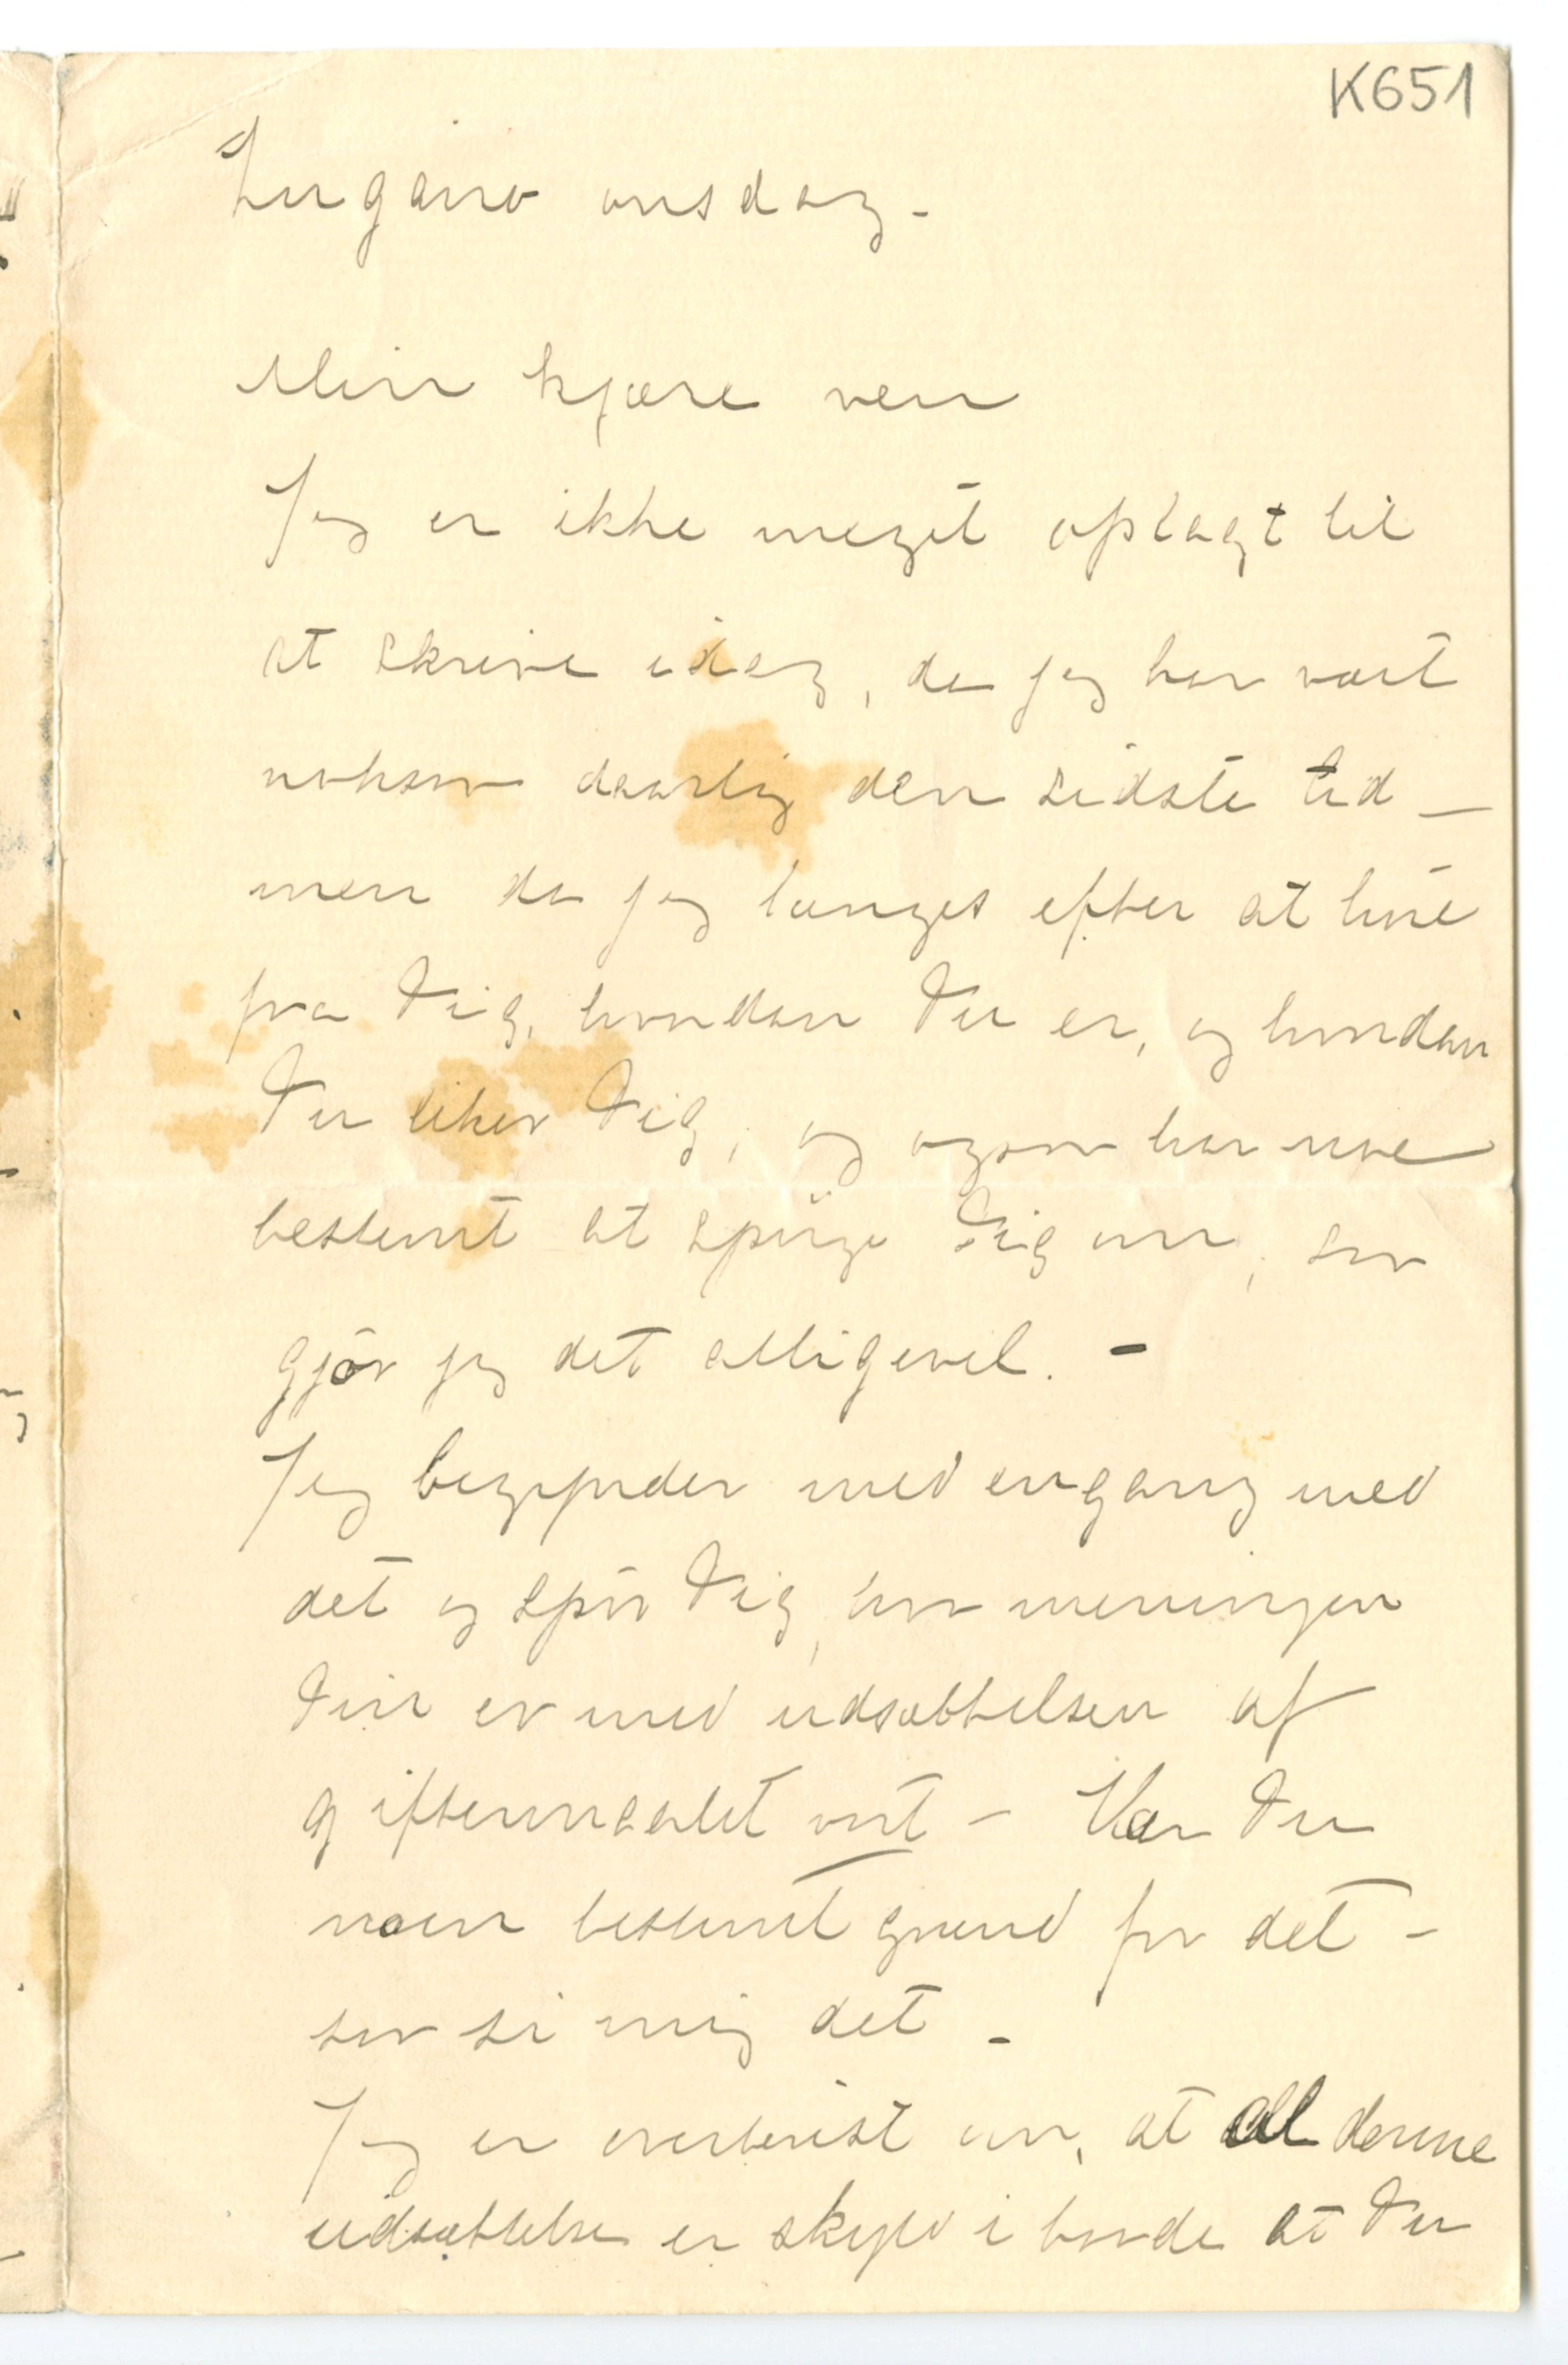 K651
Lugano onsdag -
Min kjære ven
Jeg er ikke meget oplagt til
at skrive idag, da jeg har vært
noksaa daarlig den sidste tid —
men da jeg længes efter at høre
fra Dig, hvordan Du er, og hvordan
Du liker Dig, og ogsaa har noe
bestemt at spørge Dig om, saa
gjør jeg det alligevel. -
Jeg begynder med engang med
det og spør Dig, hva meningen
Din er med udsættelsen af
giftermaalet vort - Har Du
noen bestemt grund for det -
saa si mig det -
Jeg er overbevist om, at all denne
udsættelse er skyld i baade at Du